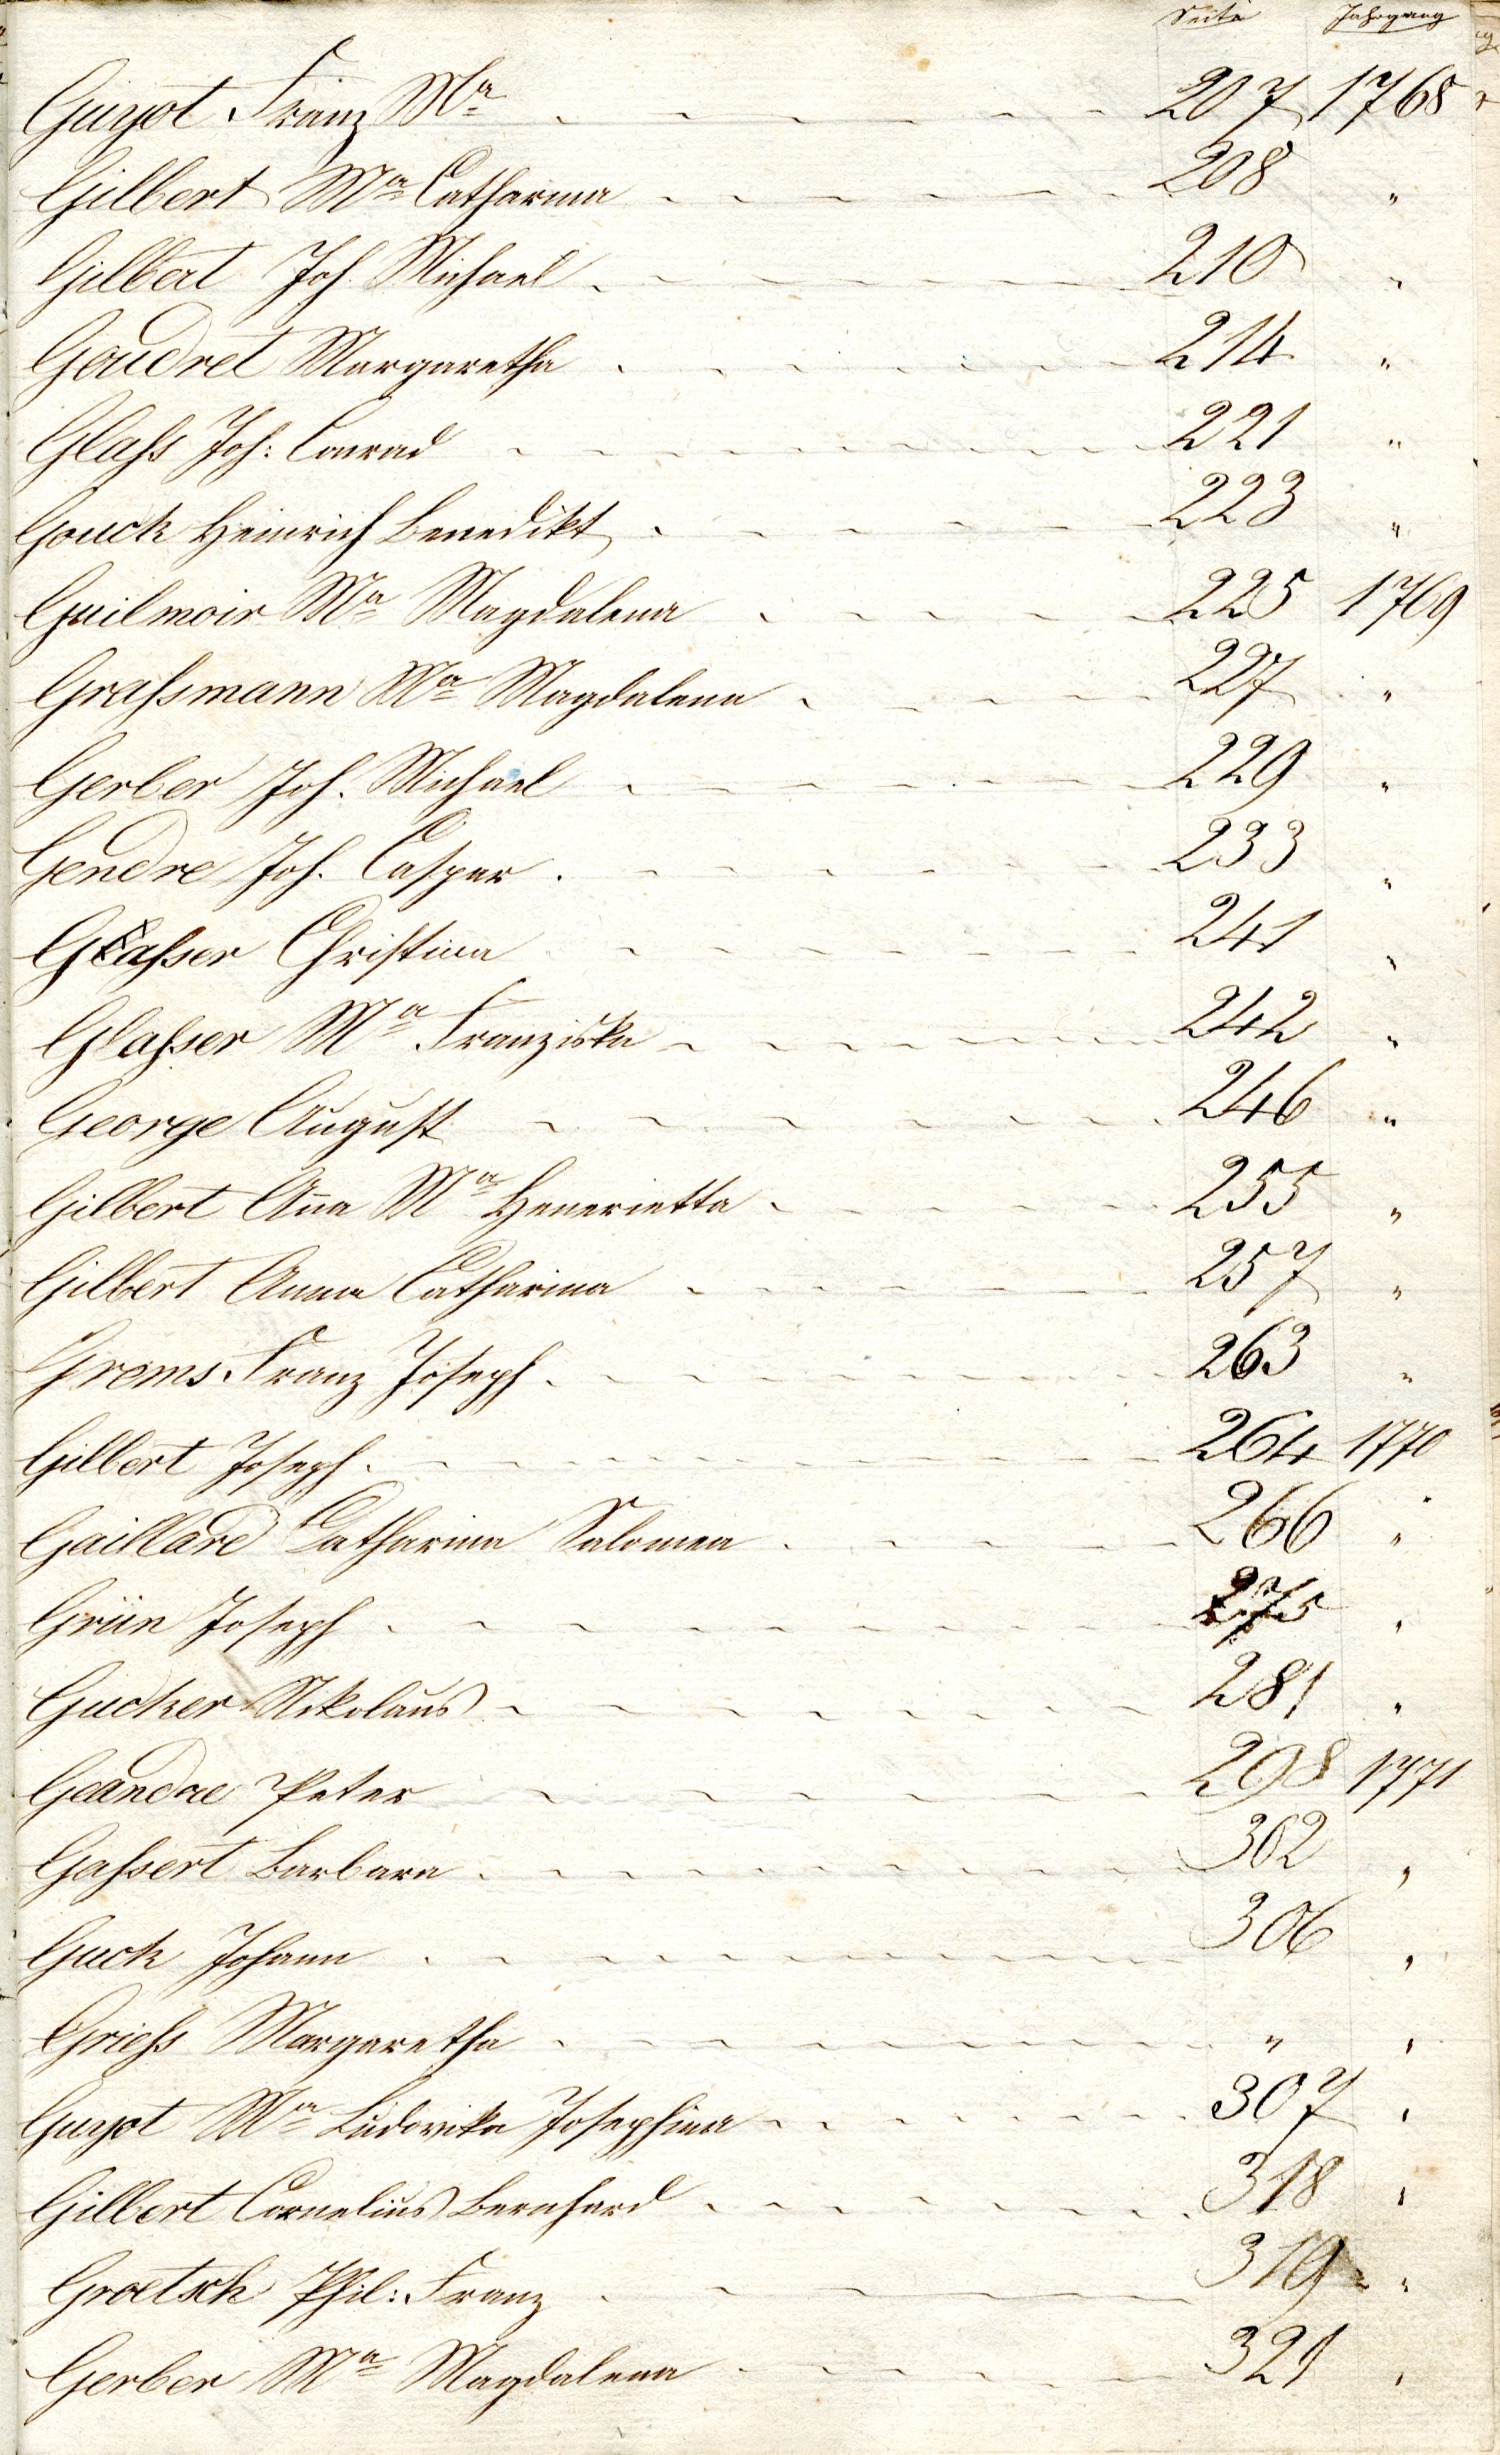 Seite Jahrgang
Guyot Franz Ma 207 1768
Gilbert Ma Catharina 208 "
Gilbert Joh Michael 210 "
Goudret Margaretha 214 "
Glaßs Joh: Conrad 221 "
Gouck Heinrich Benedikt 223 "
Guilmoir Ma Magdalena 225 1769
Graßmann Ma Magdalena 227 "
Gerber Joh. Michael 229 "
Gendre Joh. Casper 233 "
Glaßer Christina 241 "
Glaßer Ma Franziska 242 "
George August 246 "
Gilbert Ana Ma Henerietta 255 "
Gilbert Anna Catharina 257 "
Grems Franz Joseph 263 "
Gilbert Joseph 264 1770
Gaillard Catharina Salomea 266 "
Grün Joseph 275 "
Gucker Nikolaus 281 "
Geandre Peter 298 1771
Gaßert Barbara 302 "
Guck Johann 306 "
Grieß Margaretha " "
Guyot Ma Ludovika Josephina 307 "
Gilbert Cornelius Bernhard 318 "
Groetsch Phil: Franz 319 "
Gerber Ma Magdalena 321 "